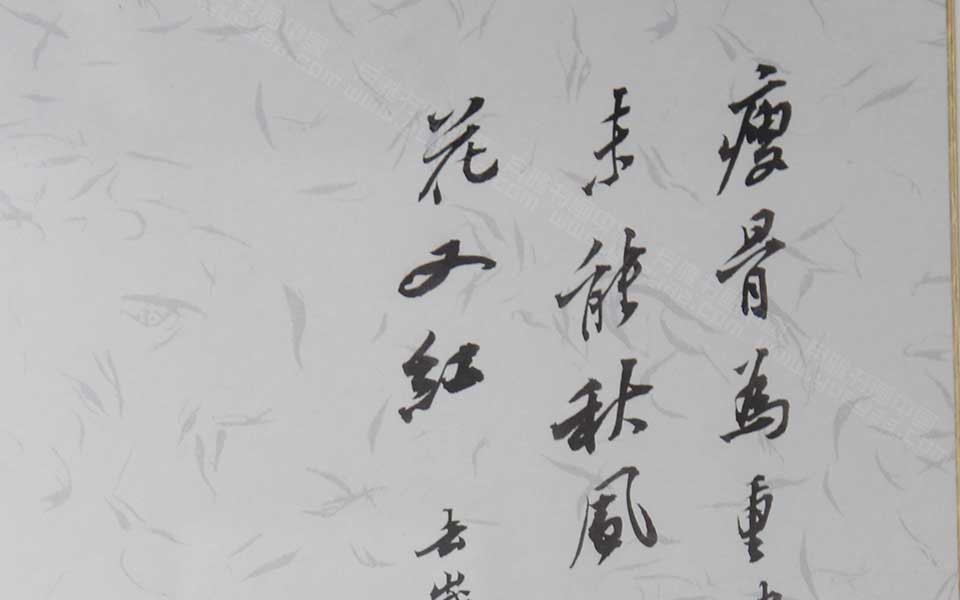 瘦骨為重
未能秋風
花又紅
去歲